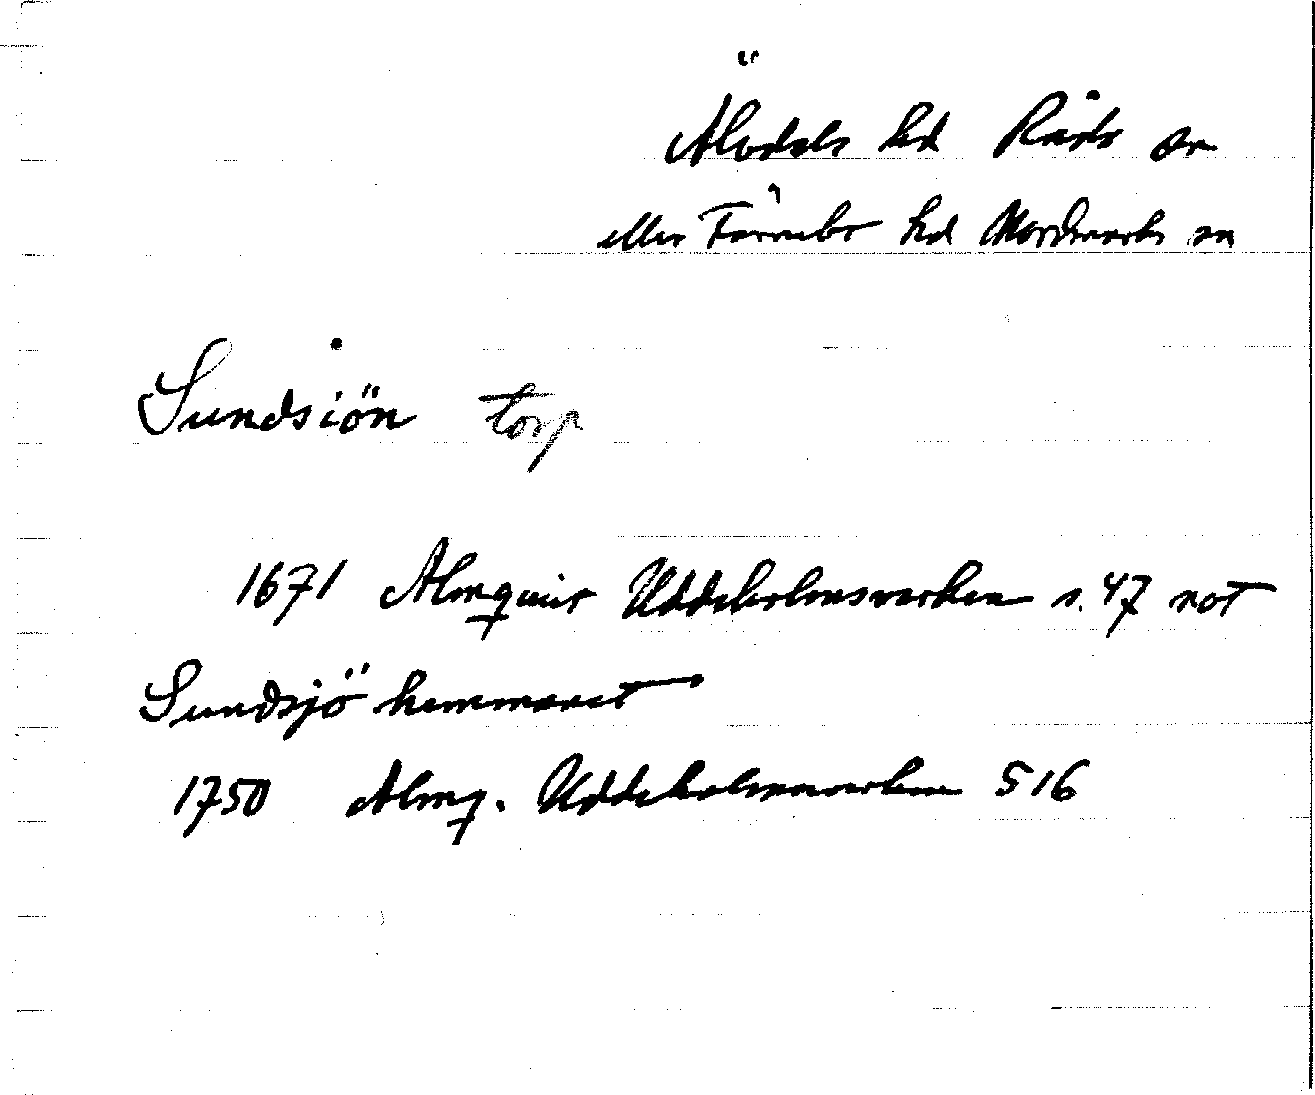 Älvdals hd Råda sn
eller Färnebo hd Nordmarks sn
Sundsiön torp
1671 Almquist Uddeholmsverken s. 47 not
Sundsjö hemmanet
1750 Almq. Uddeholmsverken 516